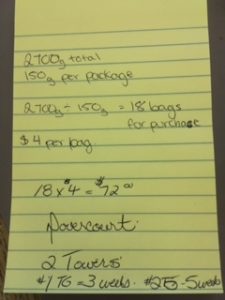 2700g total
150g per package
2700g ÷ 150g = 18 bags
for purchase
$4 per bag
18 x $4 = $72.00
2 Towers
#1 T6 = 3 weeks. #2 - 5 weeks